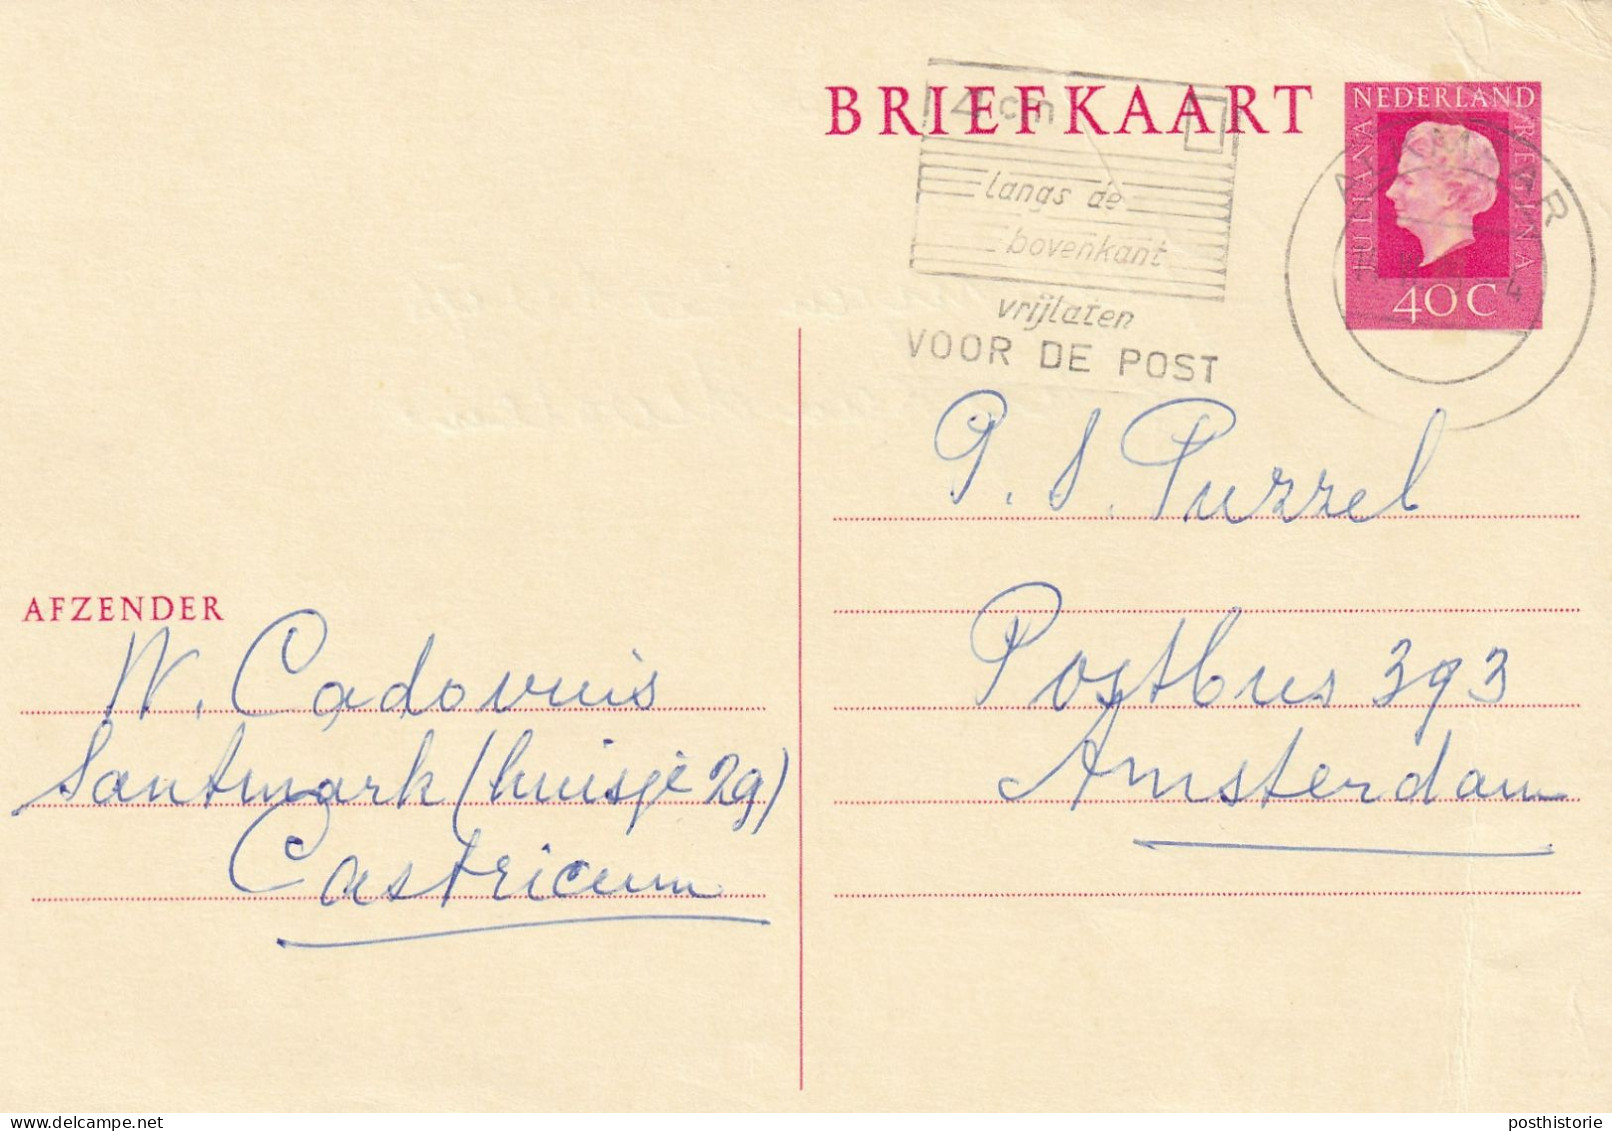 BRIEFKAART
NEDERLAND
JULIANA
REGINA
40 C
ALKMAAR
4 cm
langs de
bovenkant
vrijlaten
VOOR DE POST
P. S. Puzzel
Postbus 393
Amsterdam
AFZENDER
W. Cadovuis
Santmark (huisje 29)
Castricum
posthistorie